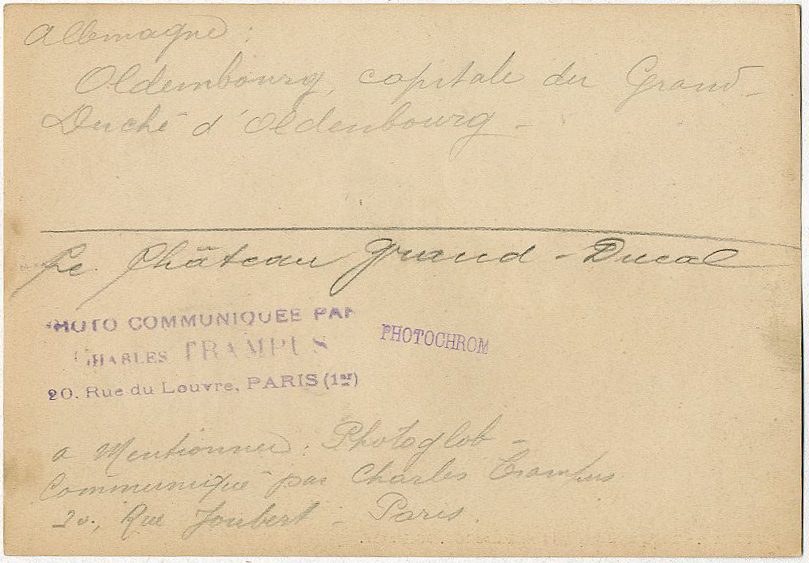 Allemagne :
Oldembourg, capitale du Grand-
Duché d'Oldenbourg -
Le Château Grand-Ducal
PHOTO COMMUNIQUÉE PAR
CHARLES TRAMPUS
20. Rue du Louvre, PARIS (1er)
PHOTOCHROM
a Mentionner : Photoglob -
Communiqué par Charles Trampus
20, Rue Joubert - Paris.